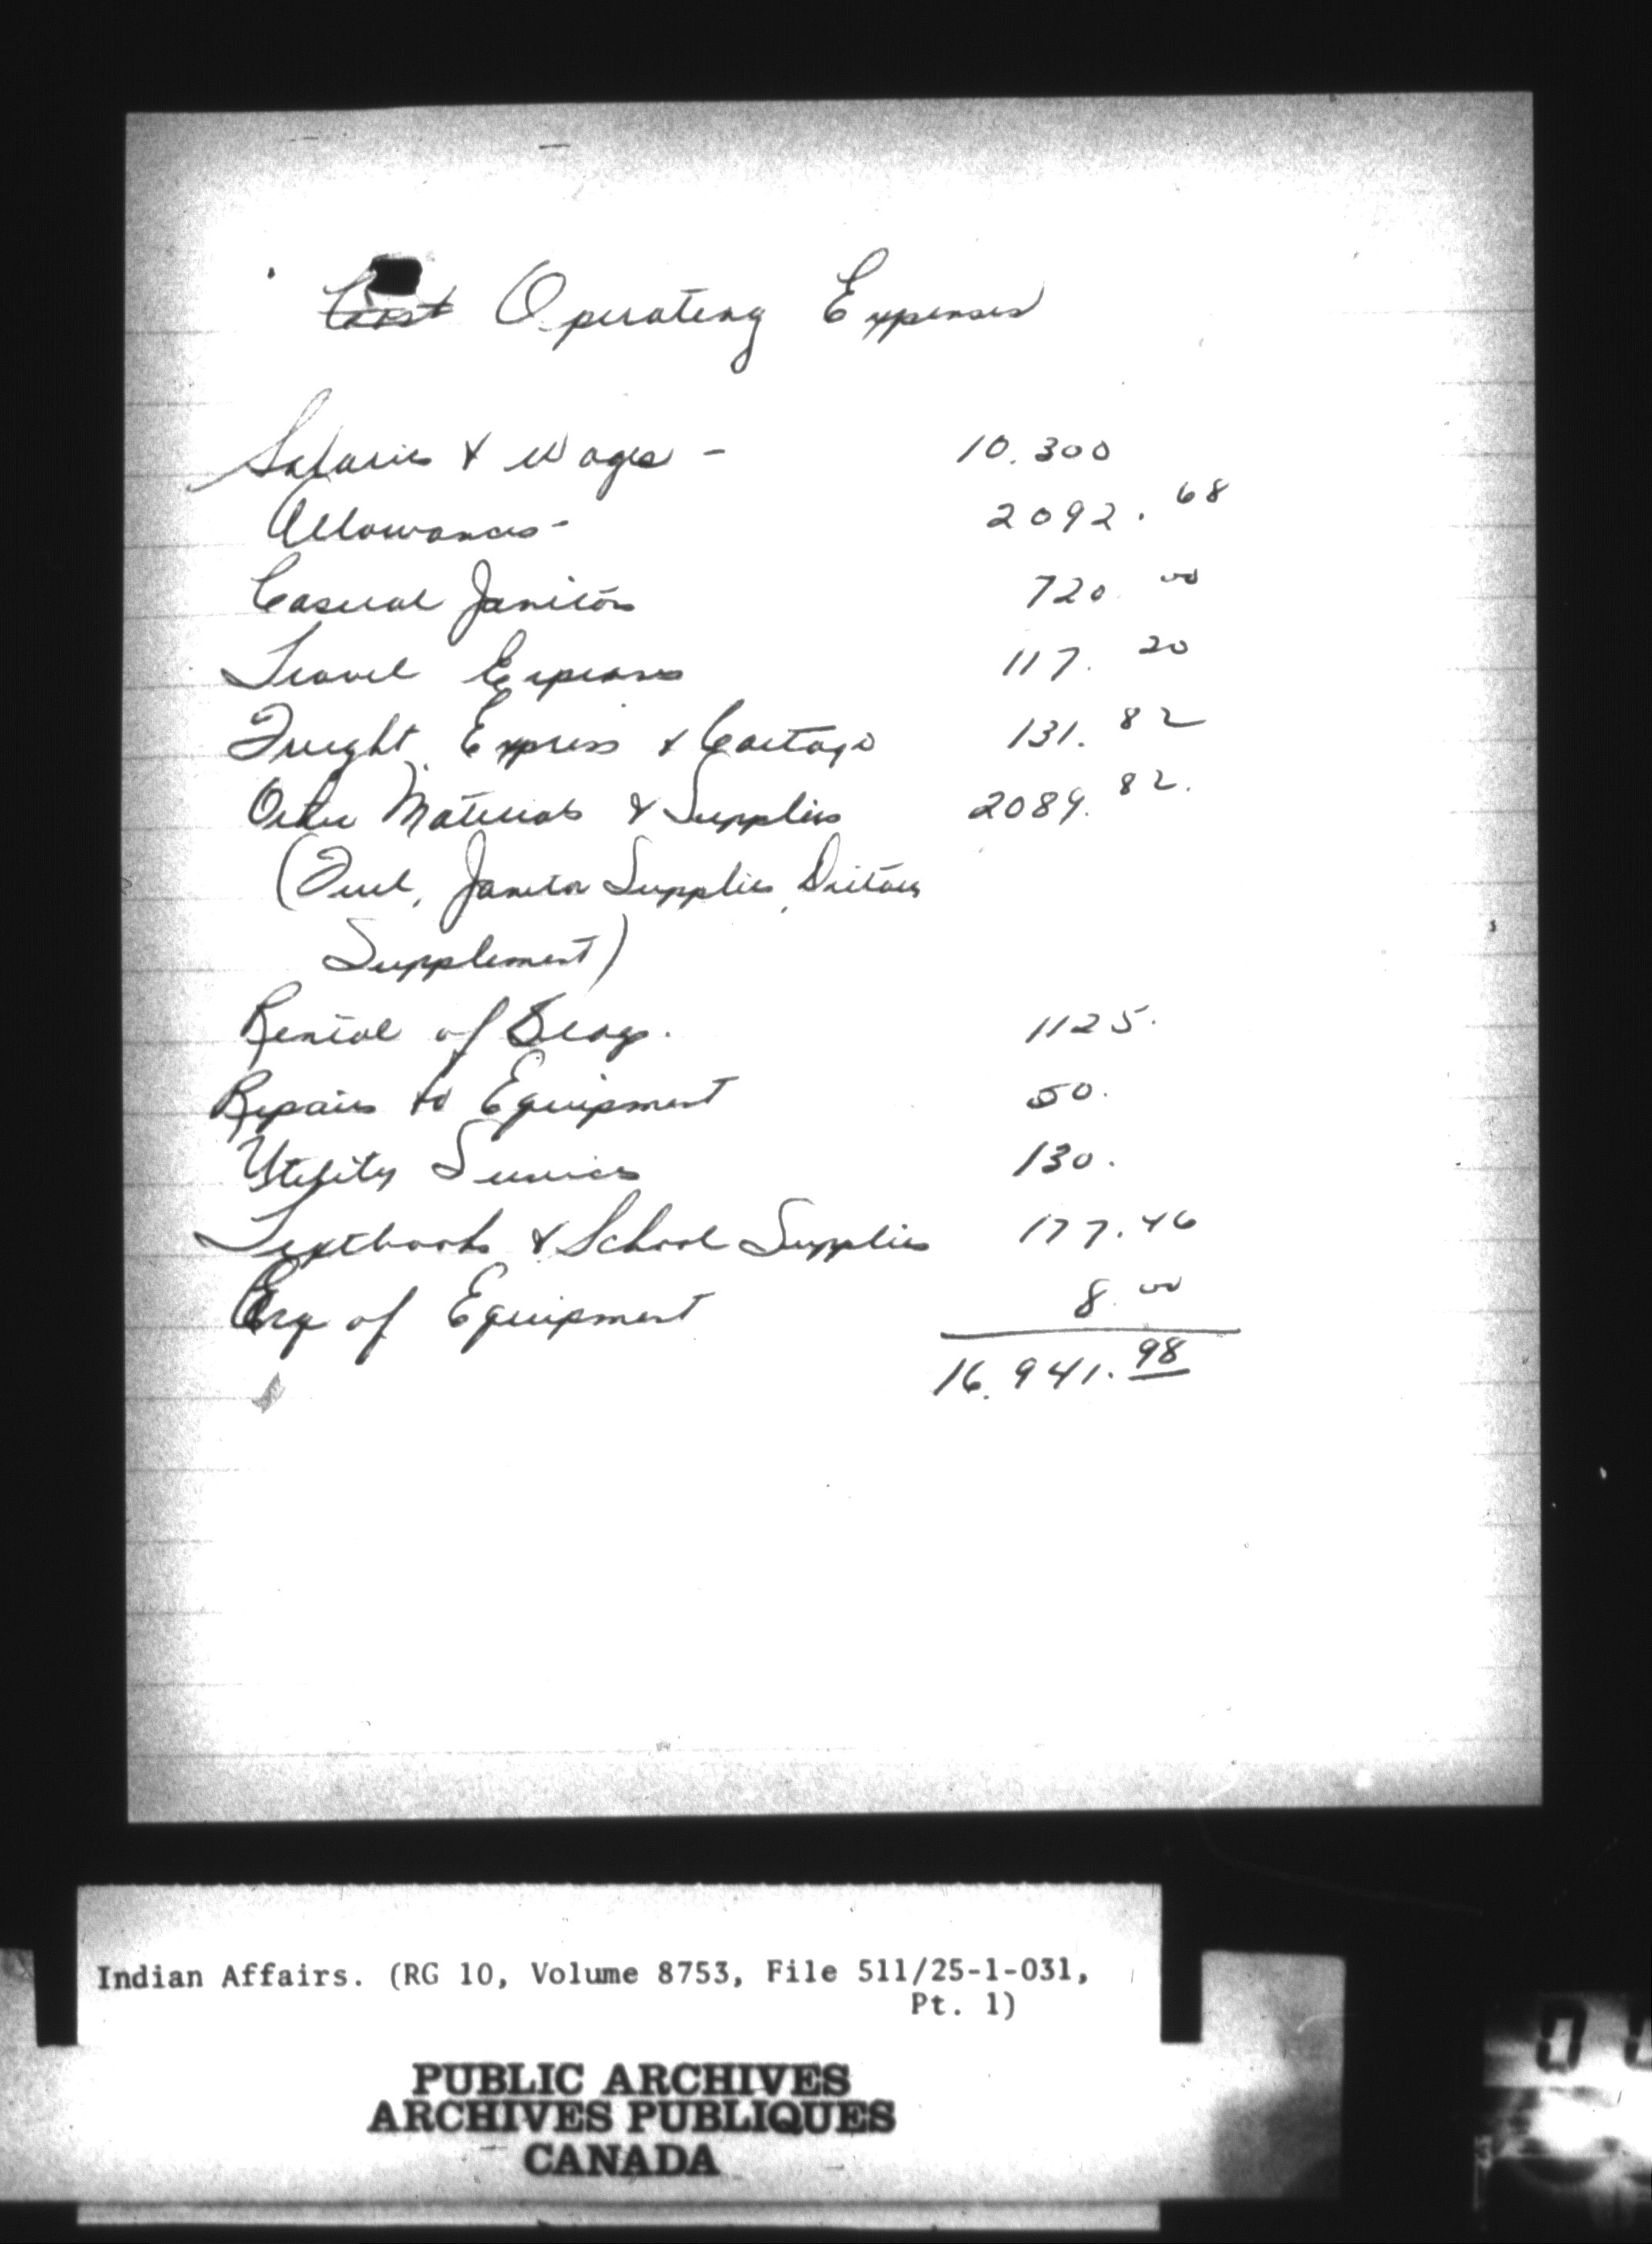 Cost Operating Expenses
Salaries & Wages - 10.300
Allowances - 2092.68
Casual Janitors 720 00
Travel Expenses 117.20
Freight, Express & Cartage 131.82
Other Materials & Supplies 2089.82.
(Fuel, Janitor Supplies, Dietary
Supplement)
Rental of Bldgs. 1125.
Repairs to Equipment 50.
Utility Services 130.
Textbooks & School Supplies 177.46
of Equipment 8.00
16.941.98
Indian Affairs. (RG 10, Volume 8753, File 511/25-1-031,
Pt. 1)
PUBLIC ARCHIVES
ARCHIVES PUBLIQUES
CANADA